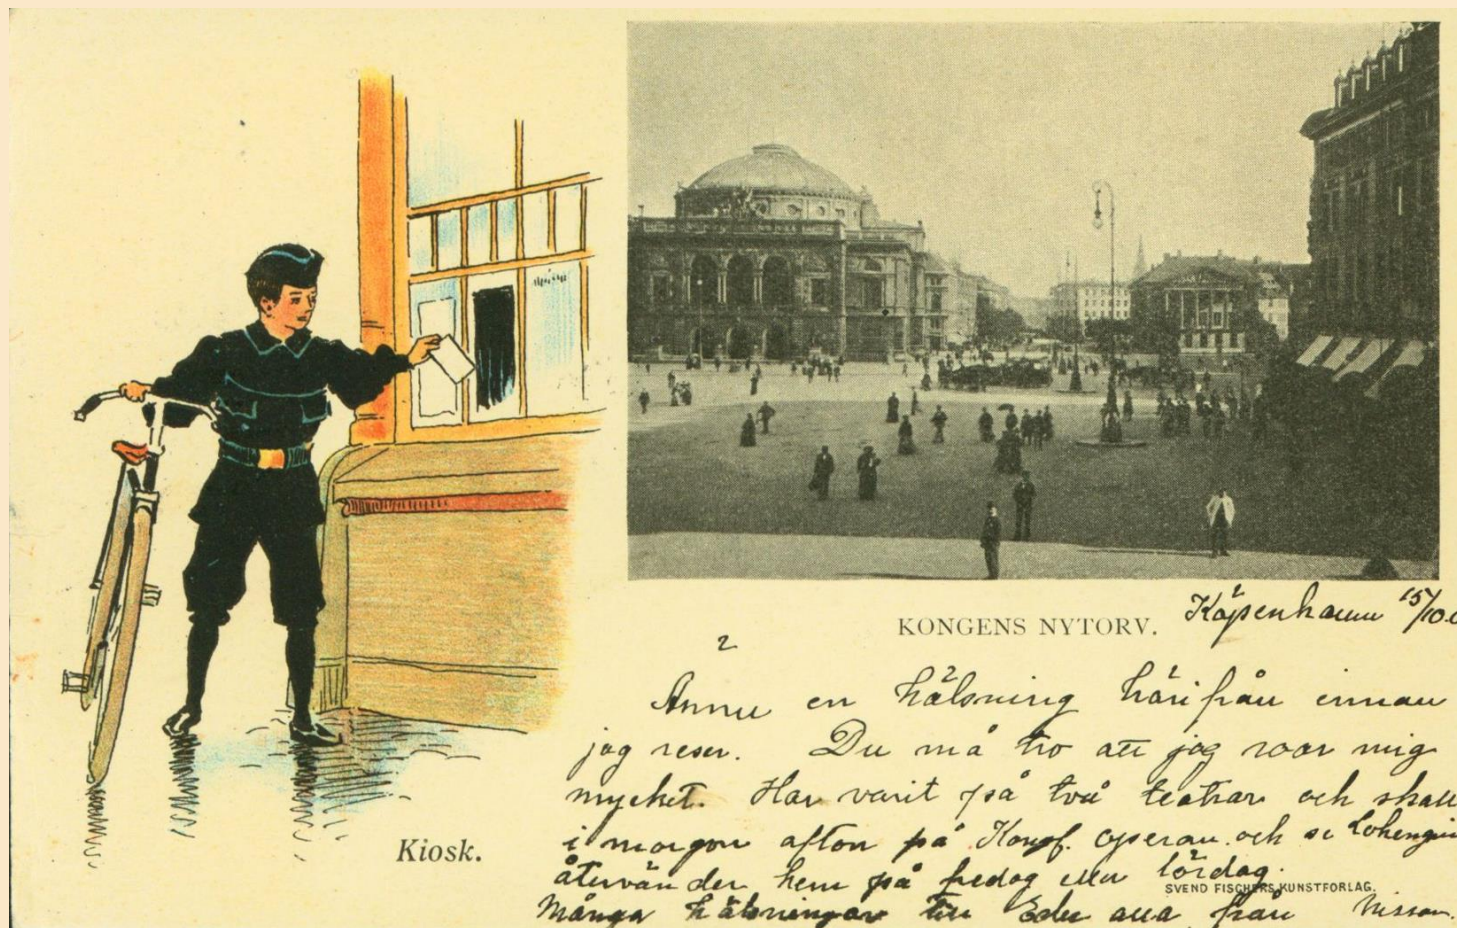 KONGENS NYTORV.
Köpenhamn 15/10.0
Ännu en hälsning härifrån innan
jag reser. Du må tro att jag roar mig
mycket. Har varit på två teatrar och skall
i morgon afton på Kongl. operan och se Lohengrin
återvänder hem på fredag eller lördag.
Många hälsningar till Eder alla från Nisson.
Kiosk.
SVEND FISCHERS KUNSTFORLAG.